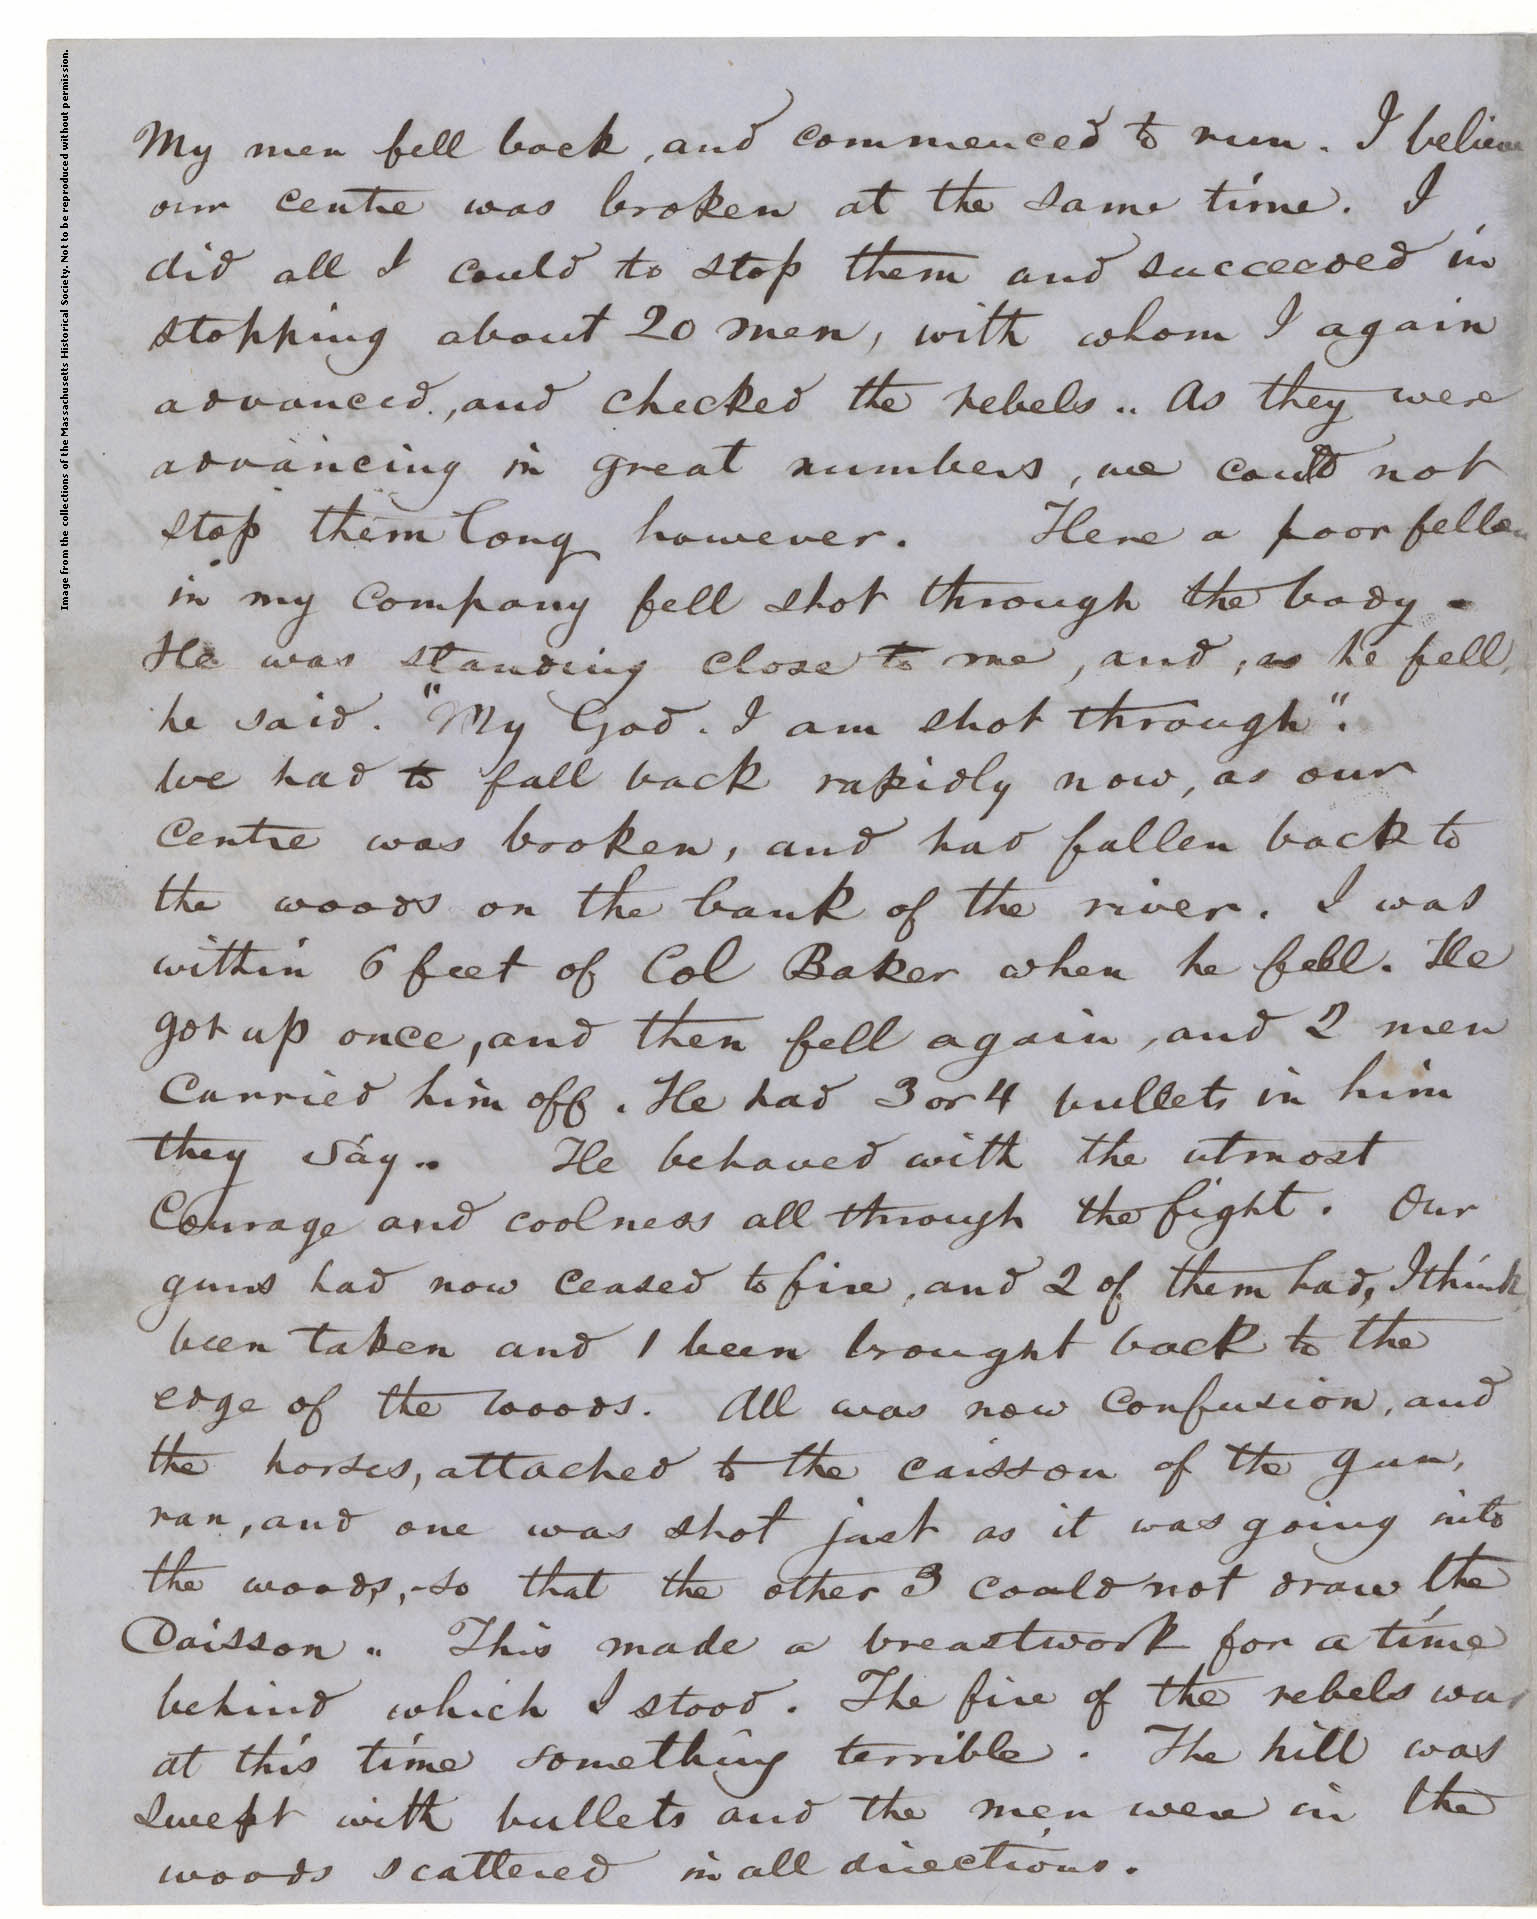 Image from the collections of the Massachusetts Historical Society. Not to be reproduced without permission.
My men fell back, and commenced to run. I believe
our centre was broken at the same time. I
did all I could to stop them and succeeded in
stopping about 20 men, with whom I again
advanced, and checked the rebels.. As they were
advancing in great numbers, we could not
stop them long however. Here a poor fellow
in my company fell shot through the body -
He was standing close to me, and, as he fell,
he said. "My God. I am shot through".
We had to fall back rapidly now, as our
centre was broken, and had fallen back to
the woods on the bank of the river. I was
within 6 feet of Col Baker when he fell. He
got up once, and then fell again, and 2 men
carried him off. He had 3 or 4 bullets in him
they say.. He behaved with the utmost
Courage and coolness all through the fight. Our
guns had now ceased to fire, and 2 of them had, I think
been taken and 1 been brought back to the
edge of the woods. All was now confusion, and
the horses, attached to the caisson of the gun,
ran, and one was shot just as it was going into
the woods, so that the other 3 could not draw the
Caisson.. This made a breastwork for a time
behind which I stood. The fire of the rebels was
at this time something terrible. The hill was
swept with bullets and the men were in the
woods scattered in all directions.